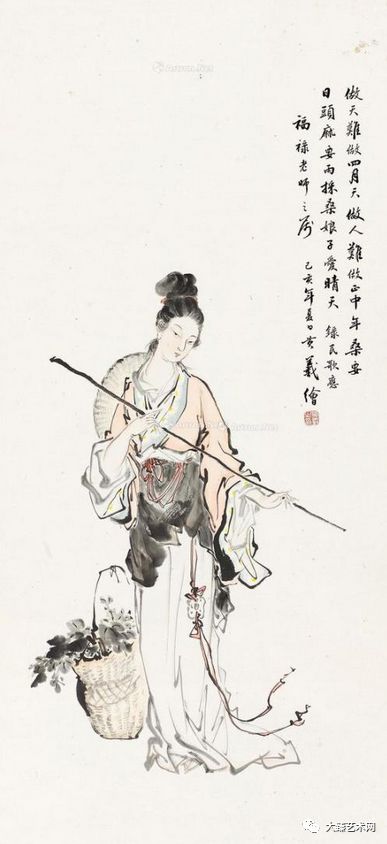 做天難做四月天做人難做正中年桑要
日頭麻要雨採桑娘子愛晴天 錄民歌應
福祿老師之屬 己亥年夏日黃義繪
Artron.Net
大臻艺术网